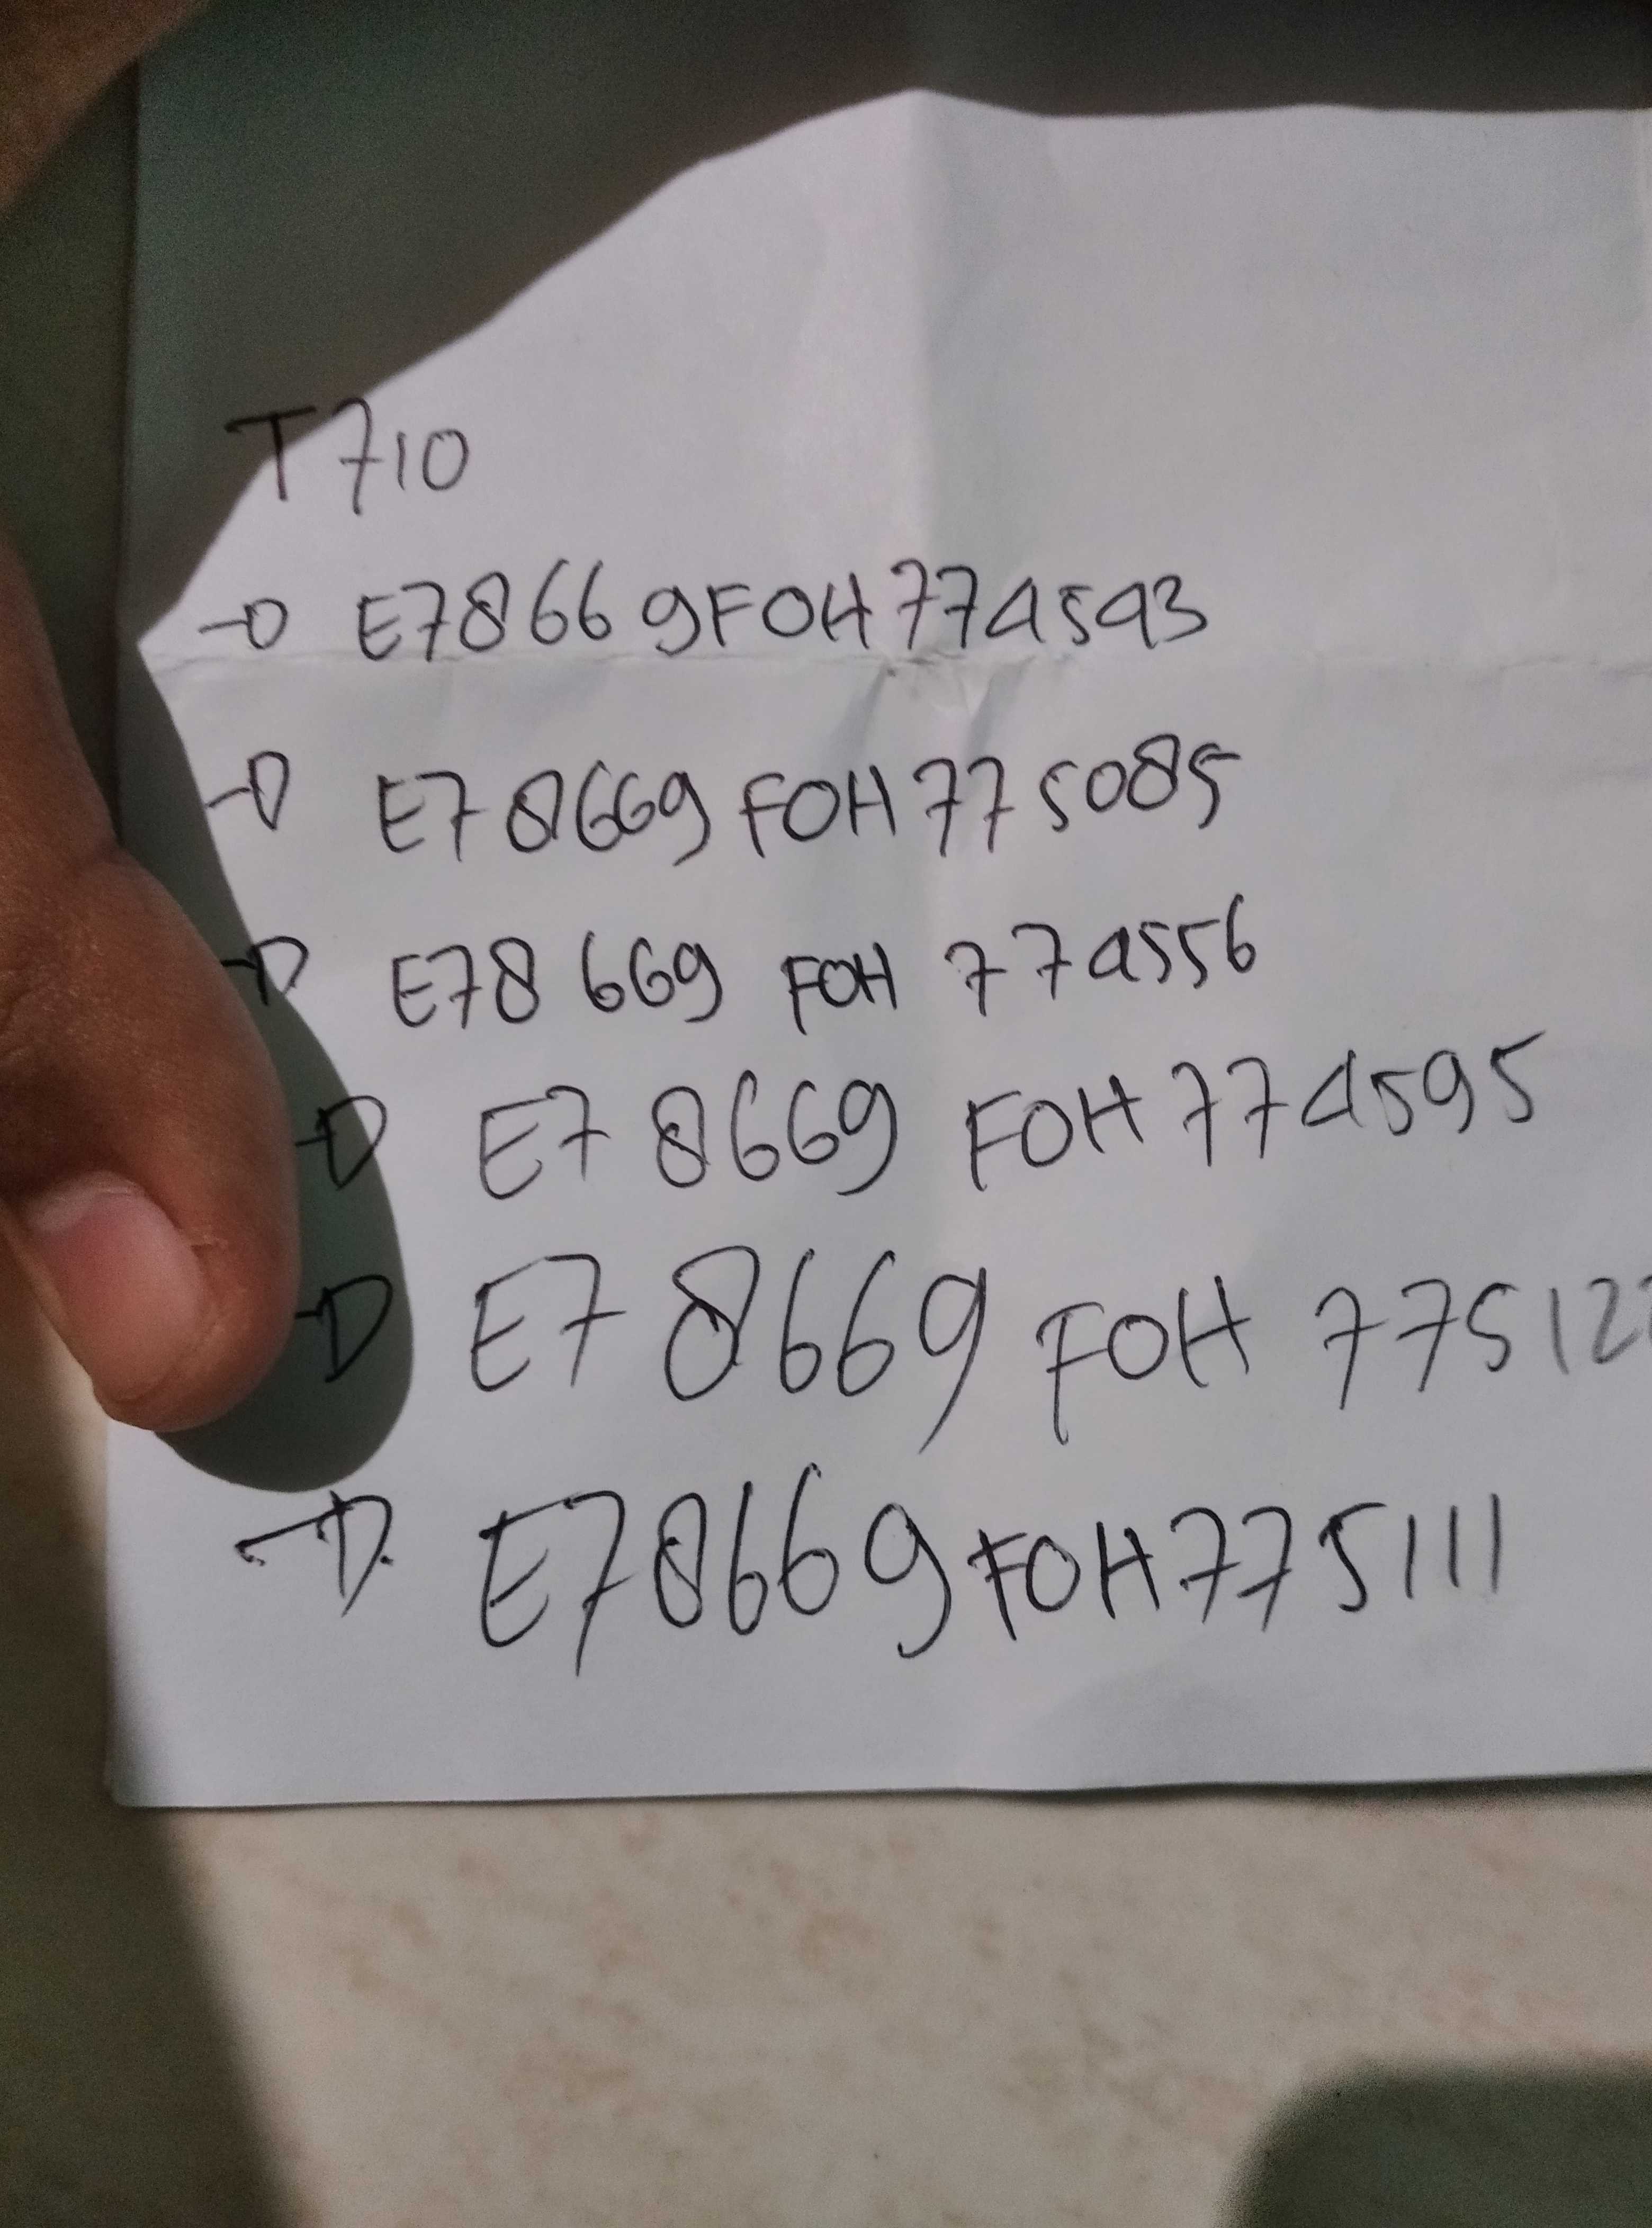 T710
→ E78669FOH774593
→ E78669FOH775085
→ E78669 FOH 774556
→ E78669 FOH774595
→ E78669 FOH 77512
→ E78669FOH775111